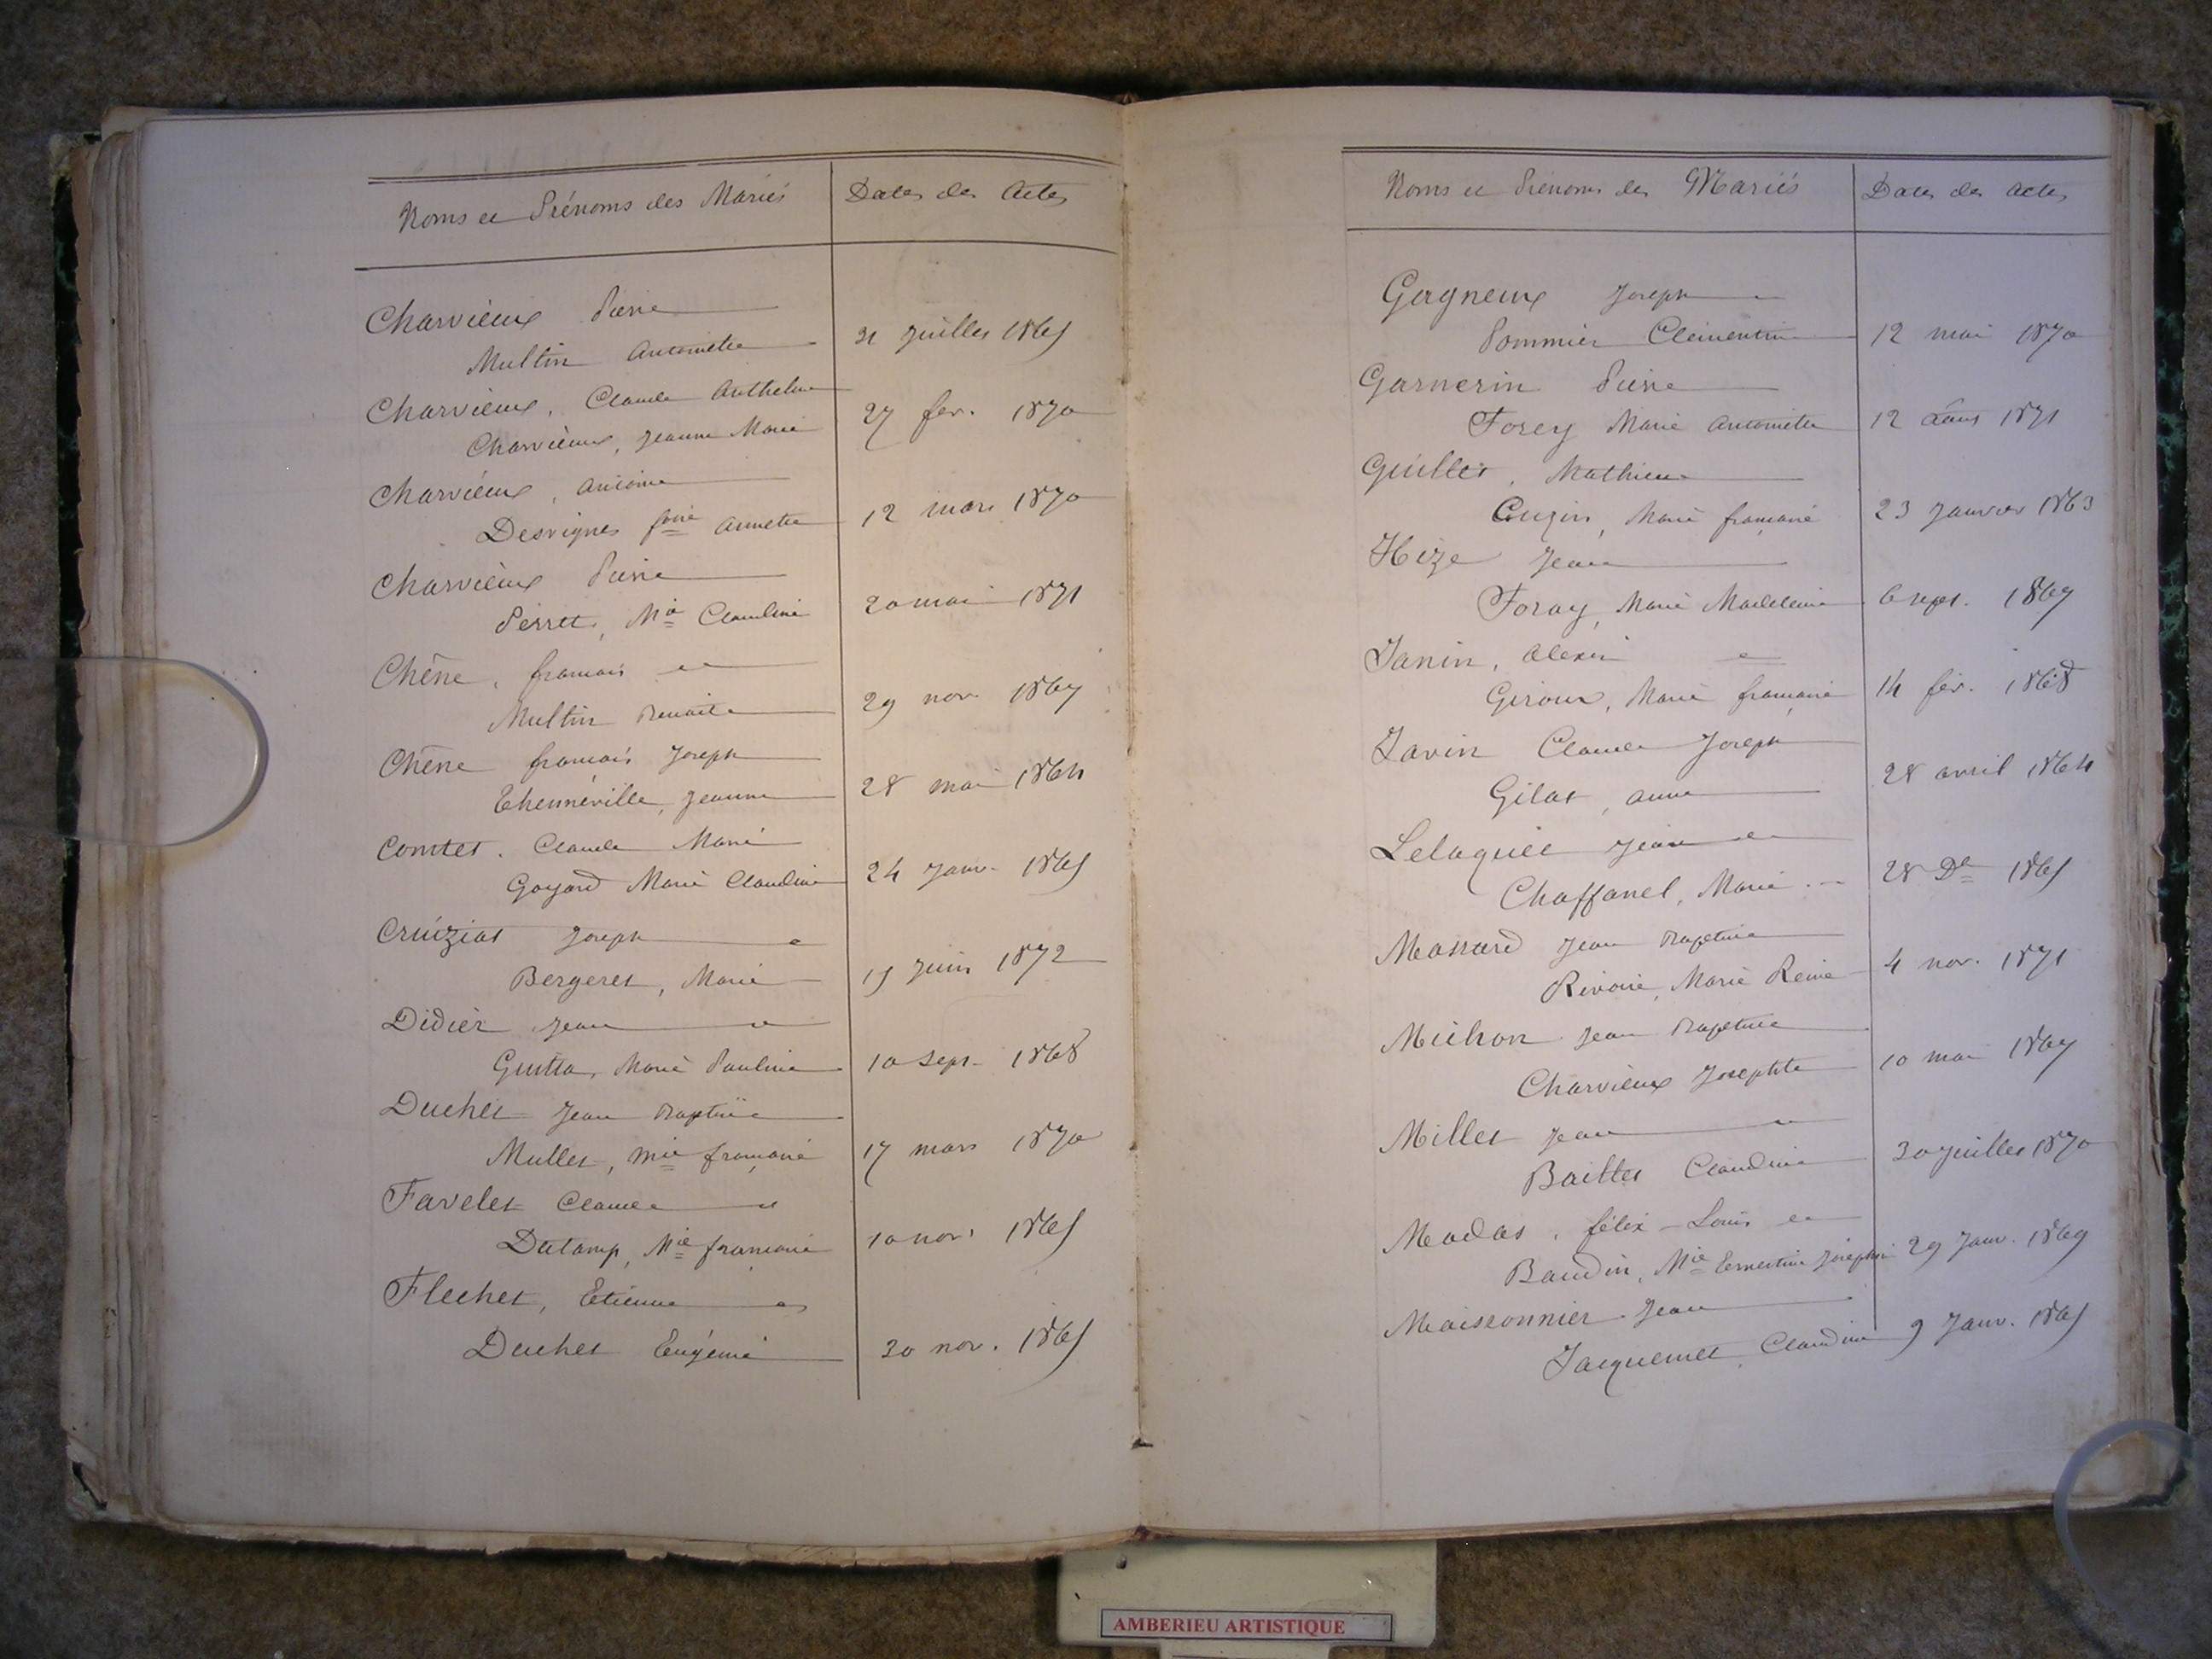 Noms et Prénoms des Mariés Dates des Actes
Charvieux Pierre
Multin Antoinette 31 Juillet 1865
Charvieux, Claude Anthelme
Charvieux, Jeanne Marie 27 fev. 1870
Charvieux, Antoine
Desvignes Annette 12 mars 1870
Charvieux Pierre
Perret, Mie Claudine 20 mai 1871
Chêne, françois et
Multin Benoite 29 nov. 1867
Chêne françois Joseph
Thenneville, Jeanne 28 mai 1864
Comtet. Claude Marie
Goyard Marie Claudine 24 Janv. 1865
Cruiziat Joseph et
Bergeret, Marie 15 Juin 1872
Didier Jean et
Guitta, Marie Pauline 10 Sept. 1868
Duchet Jean Baptiste
Mullet, Mie françoise 17 mars 1870
Favelet Claude et
Dutamp, Mie françoise 10 nov. 1865
Flechet, Etienne et
Duchet Eugénie 30 nov. 1865
Noms et Prénoms des Mariés Dates des actes
Gagneux Joseph et
Pommier Clémentine 12 mai 1870
Garnerin Pierre
Forey Marie Antoinette 12 août 1871
Guillet, Mathieu
Cuzin, Marie françoise 23 Janvier 1863
Hize Jean
Foray, Marie Madeleine 6 sept. 1867
Janin, Alexis et
Giroux, Marie françoise 14 fév. 1868
Javin Claude Joseph
Gilat, anne 28 avril 1864
Lelaquet Jean et
Chaffanel, Marie 28 De 1865
Massard Jean Baptiste
Rivoire, Marie Reine 4 nov. 1871
Michon Jean Baptiste
Charvieux Josephte 10 mai 1867
Millet Jean et
Baillet Claudine 30 Juillet 1870
Modas, félix-Louis et
Baudin, Mie Ernestine Joséphine 29 Janv. 1869
Maissonnier Jean
Jacquemet, Claudine 9 Janv. 1865
AMBERIEU ARTISTIQUE